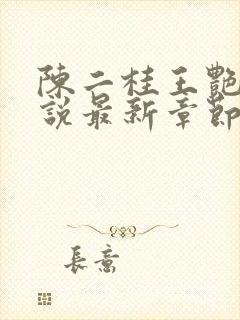 陳二桂王艷
說最新章節
長意